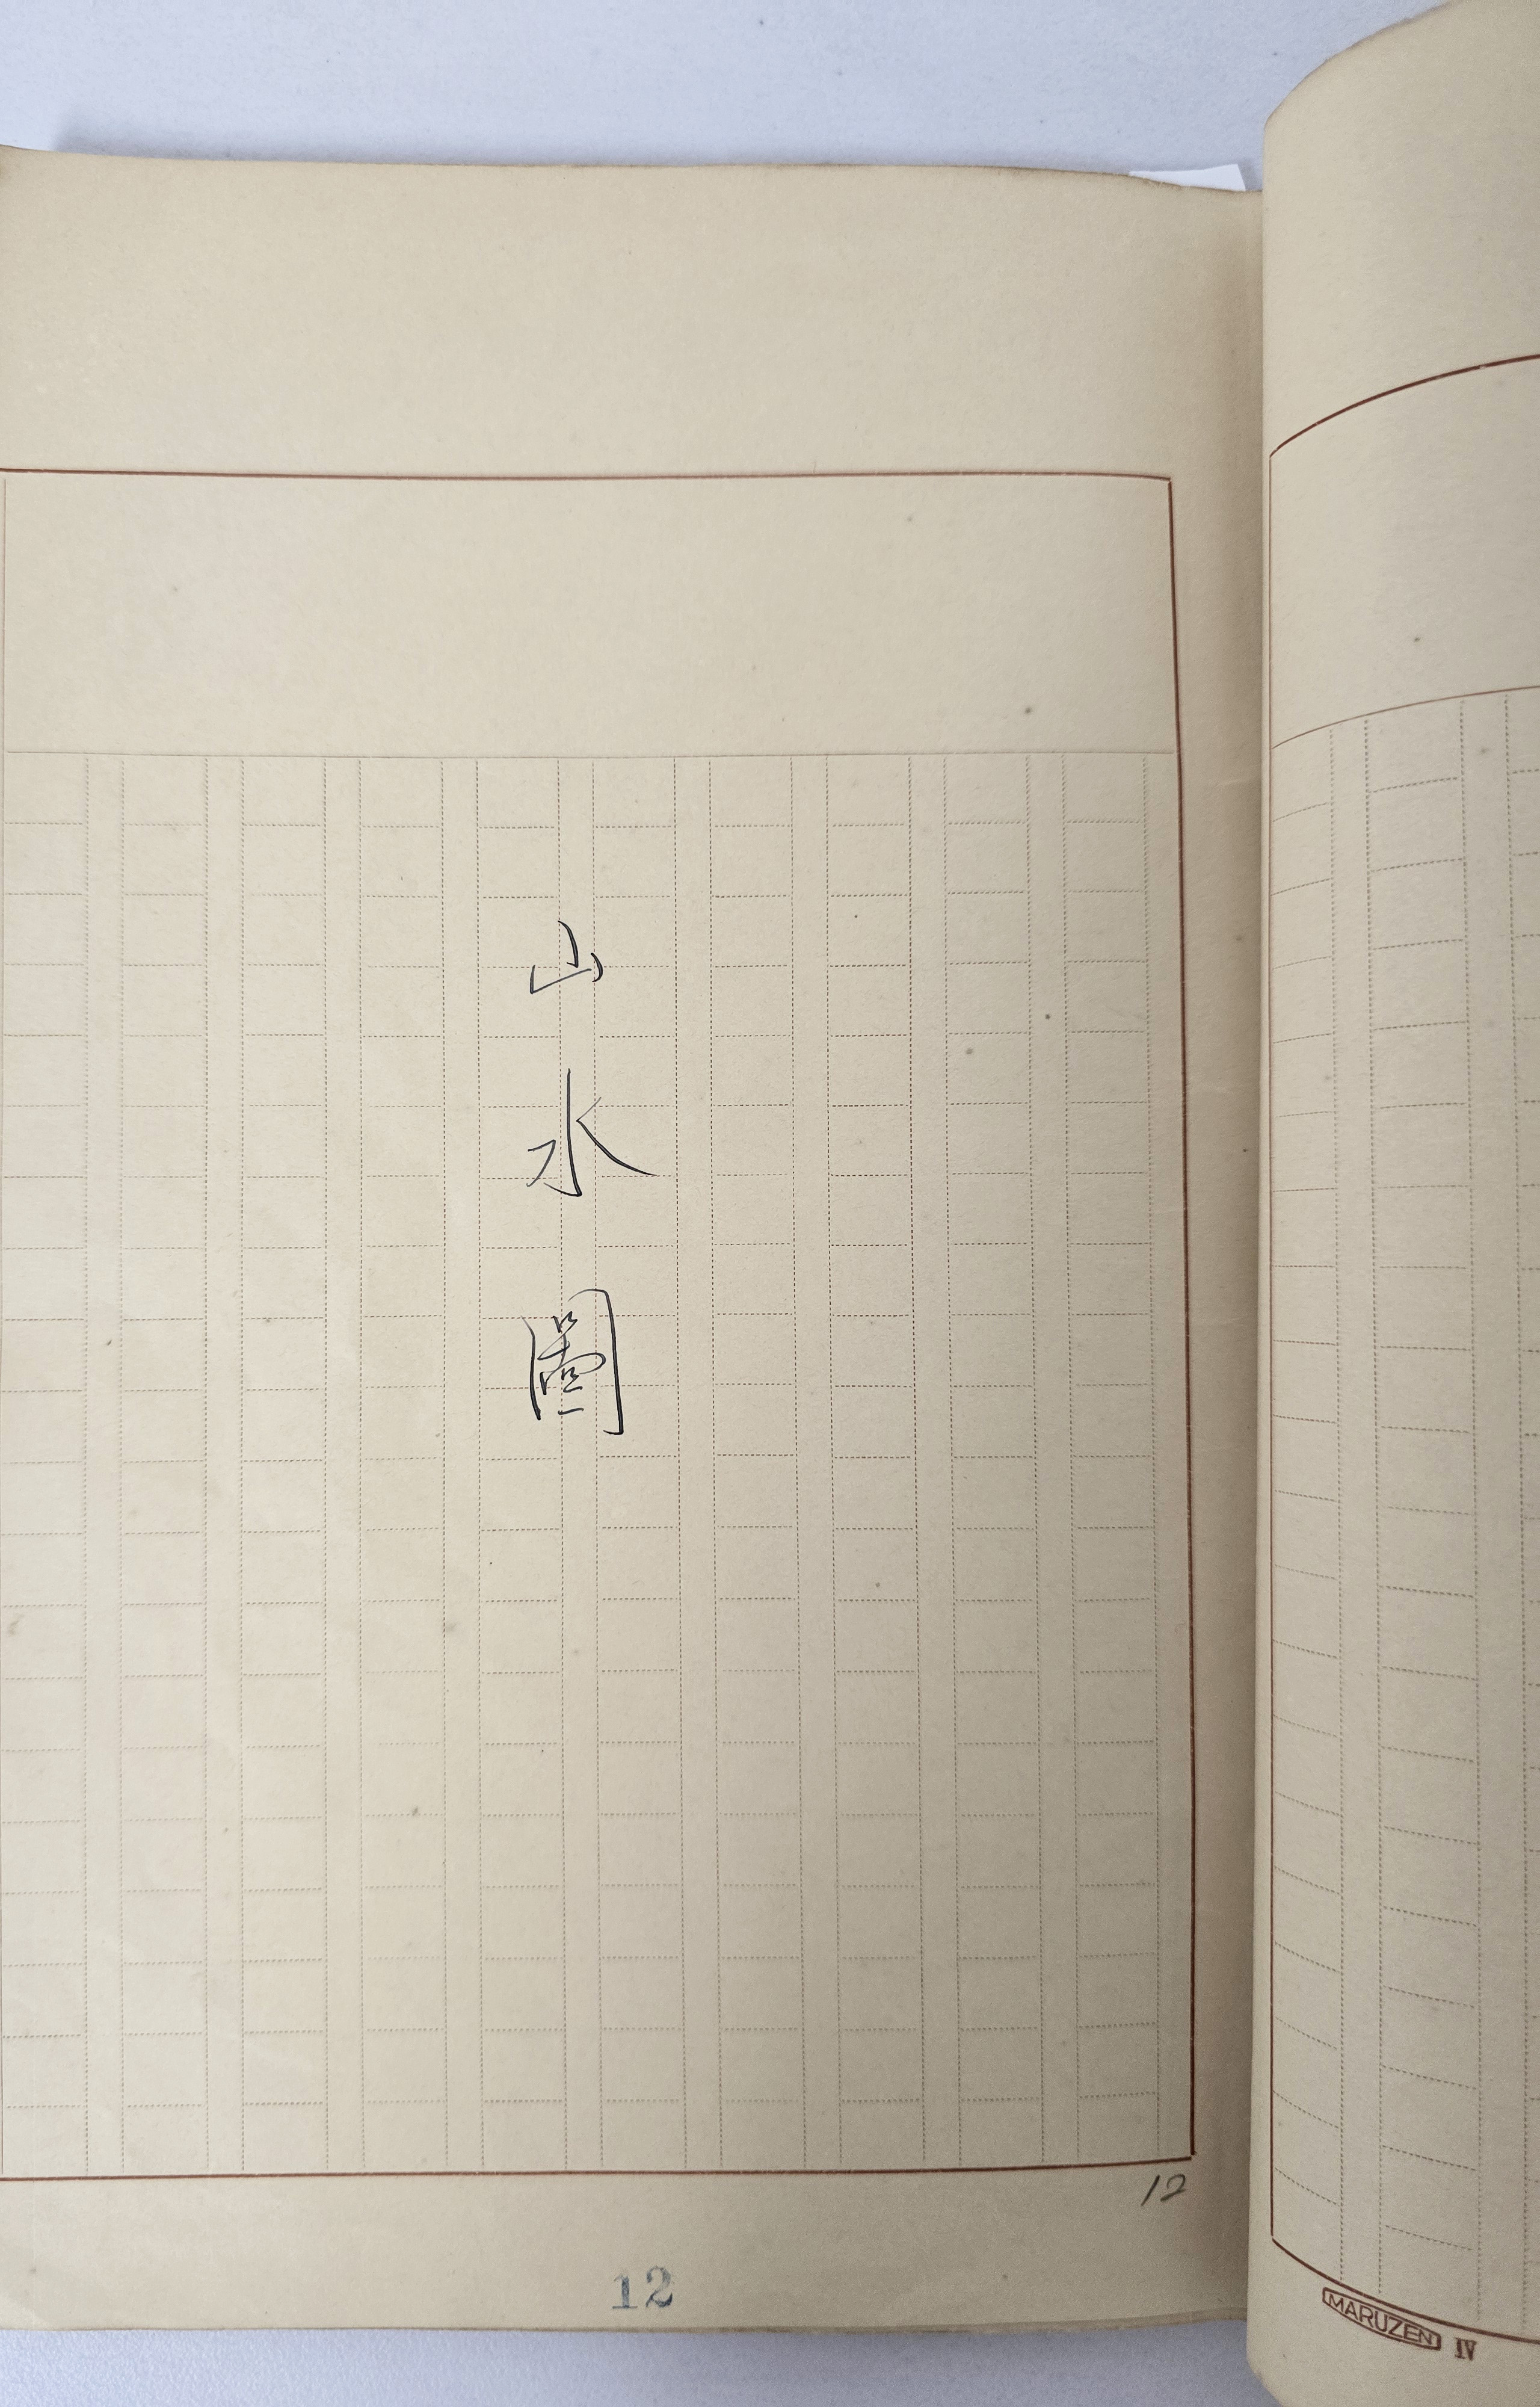 山水圖
12
12
MARUZEN IV